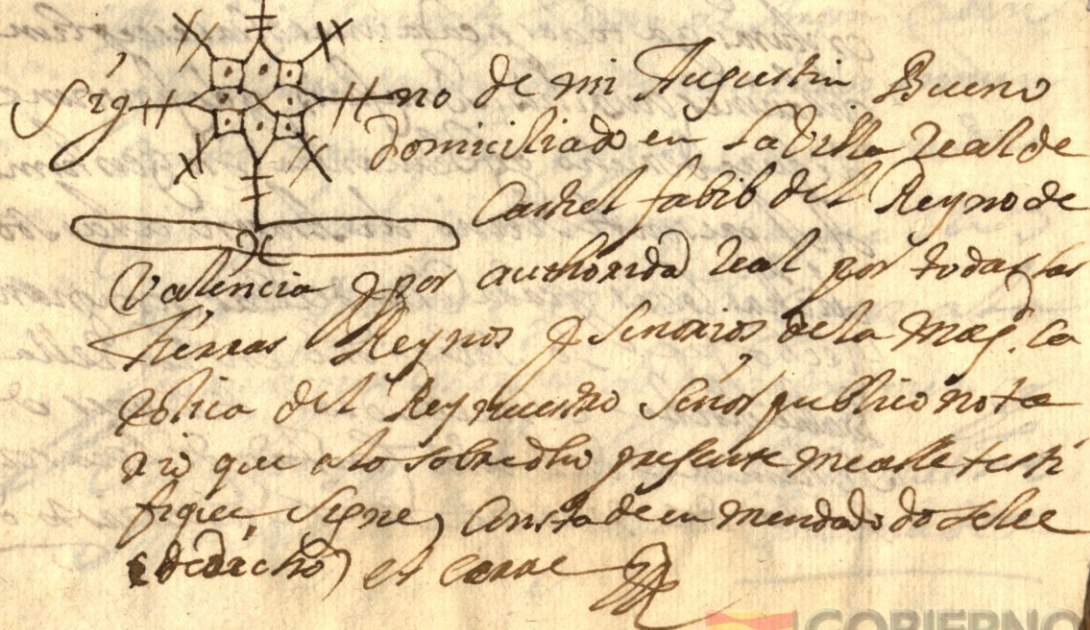 Sig no de mi Augustin Bueno
domiciliado en la Villa Real de
Castel fabib del Reyno de
Valencia y por authoridad Real por todas las
tierras Reynos y Senorios de la Magd. Ca
tolica del Rey nuestro Señor publico nota
rio que a lo sobredho presente me alle testi
fique signe, Consta de en mendado do se lee
dicho et cerre
GOBIERNO